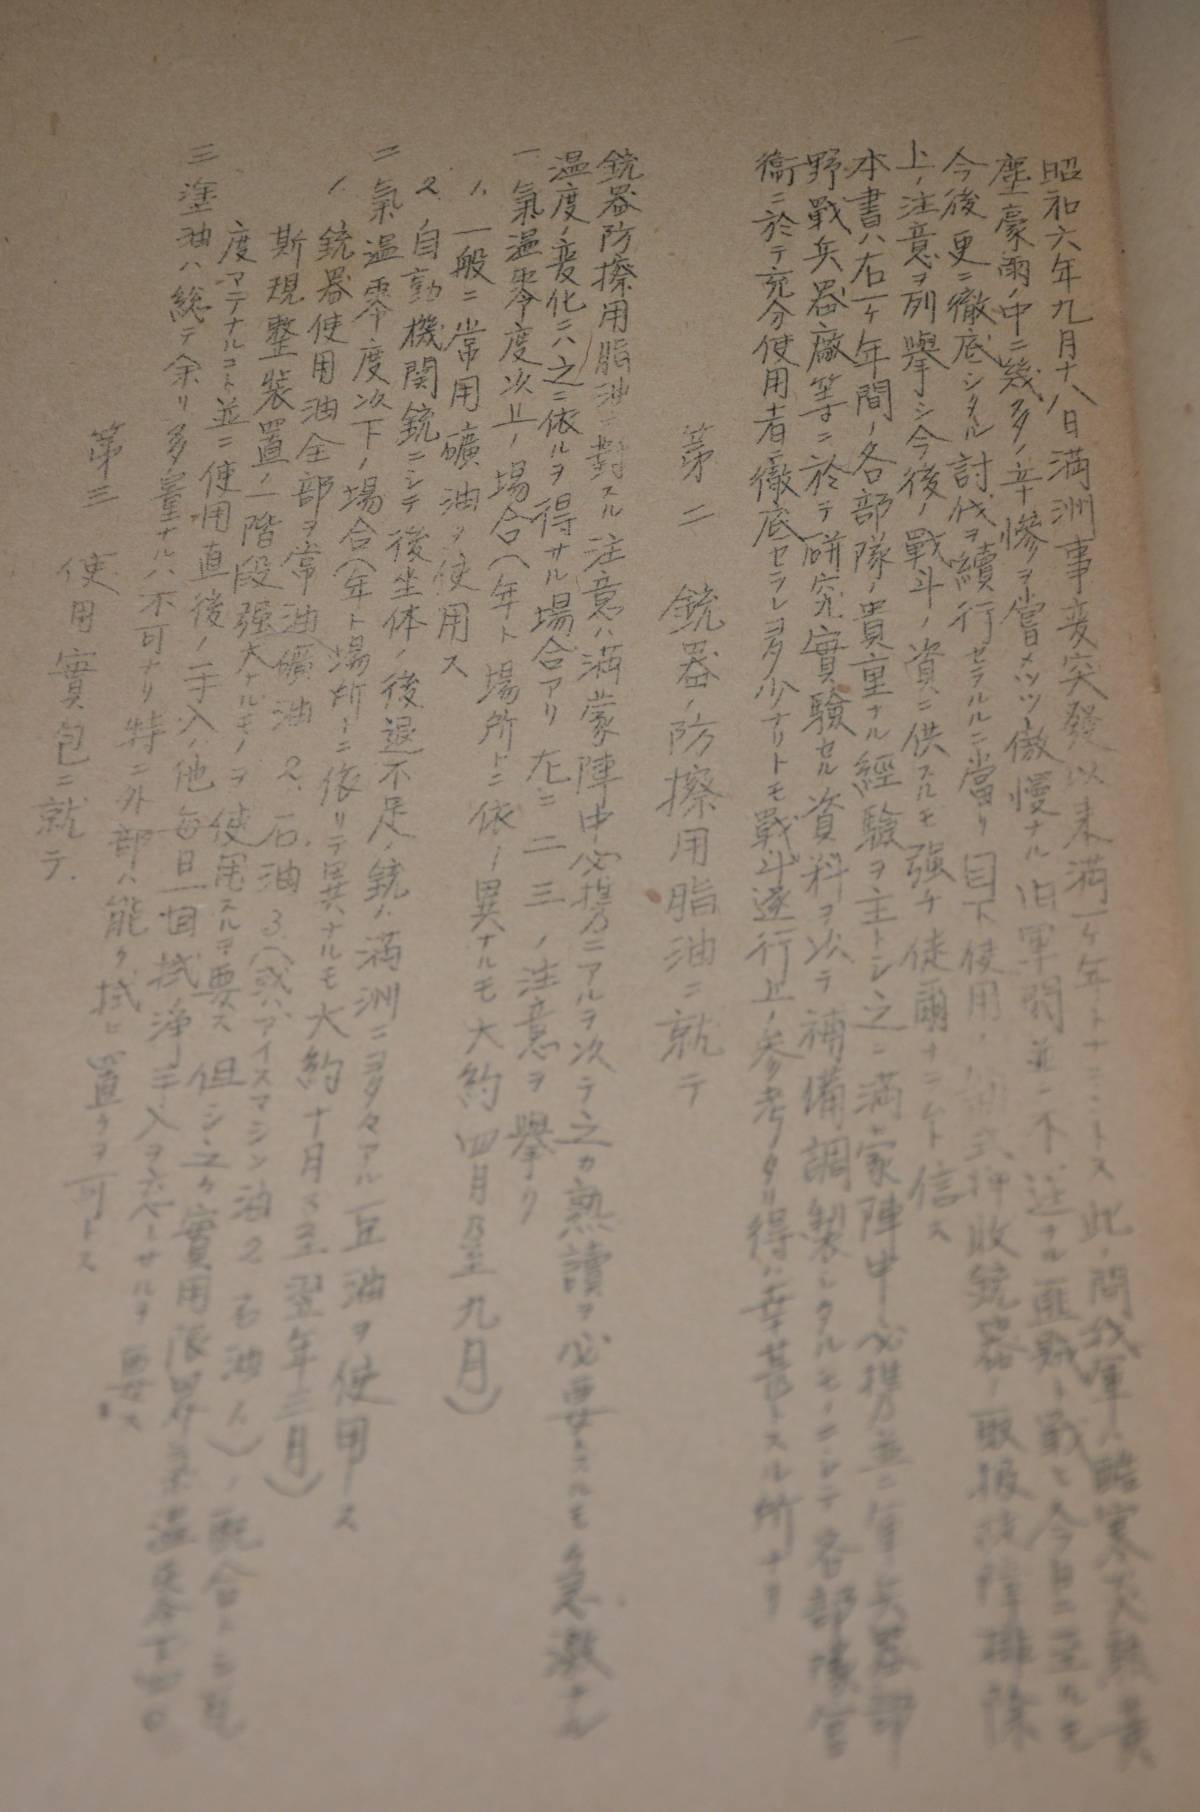 昭和六年九月十八日満洲事変突発以来満一ヶ年トナ ントス此ノ間我軍ハ酷寒炎熱黄
塵豪雨ノ中ニ幾多ノ辛惨ヲ嘗メツツ傲慢ナル旧軍閥並ニ不逞ナル匪賊ト戦ヒ今日ニ至ルモ
今後更ニ徹底シタル討伐ヲ続行セラルルニ當リ目下使用ノ 式押收銃器ノ取扱故障排除
上ノ注意ヲ列擧シ今後ノ戰斗ノ資ニ供スルモ強チ徒爾ナラント信ス
本書ハ右一ヶ年間ノ各部隊ノ貴重ナル經驗ヲ主トシ之ニ満蒙陣中必携並ニ 兵器部
野戰兵器廠等ニ於テ研究實驗セル資料ヲ以テ補備調製シタルモノニシテ各部隊官
衙ニ於テ充分使用者ニ徹底セラレ多少ナリトモ戰斗遂行上ノ参考タリ得ハ幸甚トスル所ナリ
第二 銃器ノ防擦用脂油ニ就テ
銃器防擦用脂油ニ對スル注意ハ満蒙陣中必携ニアルヲ以テ之カ熟讀ヲ必要トスルモ急激ナル
温度ノ変化ニハ之ニ依ルヲ得サル場合アリ左ニ二三ノ注意ヲ擧ク
一 氣温零度以上ノ場合(年ト場所トニ依 異ナルモ大約四月乃至九月)
1、一般ニ常用礦油ヲ使用ス
2、自動機関銃ニシテ後坐体ノ後退不足ノ銃ハ満洲ニ アル豆油ヲ使用ス
二 氣温零度以下ノ場合(年ト場所トニ依リテ異ナルモ大約十月乃至翌年三月)
1、銃器使用油全部ヲ常油(礦油2、石油3)(或ハアイスマシン油2 石油1)ノ配合トシ
斯現整装置ノ一階段強大ナルモノヲ使用スルヲ要ス但シ之ケ實用限界ハ氣温零下四〇
度 ナルコト並ニ使用直後ノ手入ノ他毎日一回拭浄手入ヲ サルヲ要ス
三 塗油ハ総テ余リ多量ナルハ不可ナリ特ニ外部ハ能ク拭ヒ置クヲ可トス
第三 使用實包ニ就テ